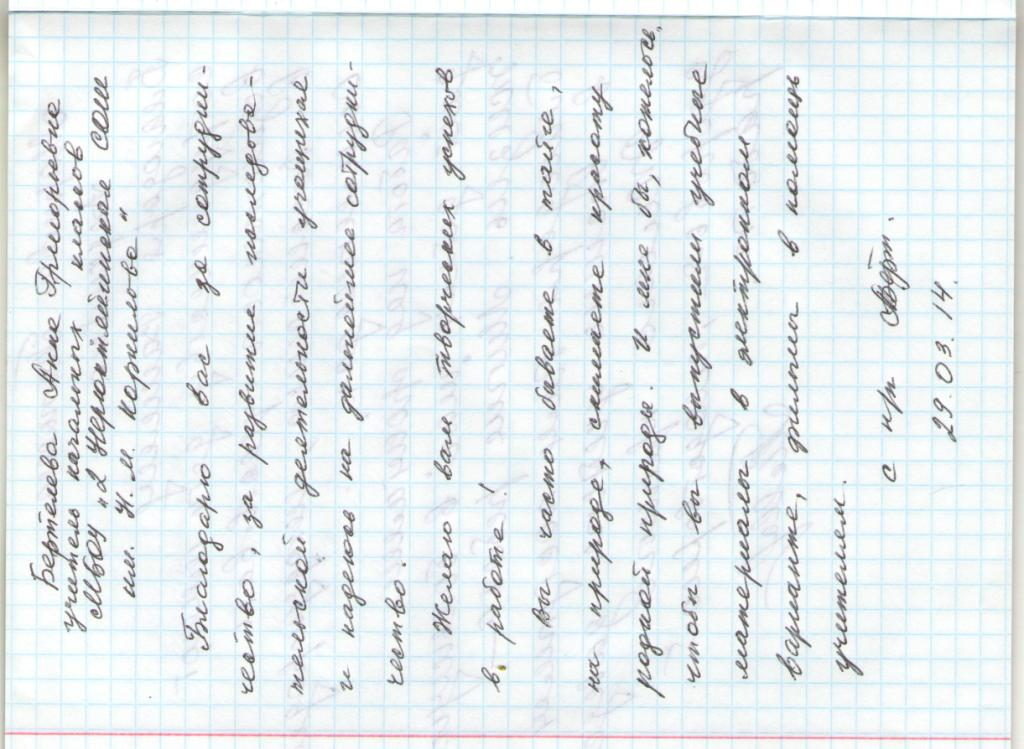 Бертелева Анна Григорьевна
учитель начальных классов
МБОУ "2 Нерюктяйинская СОШ
им. Н. М. Корнилова"
Благодарю вас за сотрудни-
чество, за развитие исследова-
тельской деятельности учащихся
и надеюсь на дальнейшее сотрудни-
чество!
Желаю вам творческих успехов
в работе!
Вы часто бываете в тайге,
на природе, снимаете красоту
родной природы. И мне бы, хотелось,
чтобы вы выпустили учебные
материалы в электронном
варианте, фильмы в помощь
учителям.
с ув.
29.03.14.